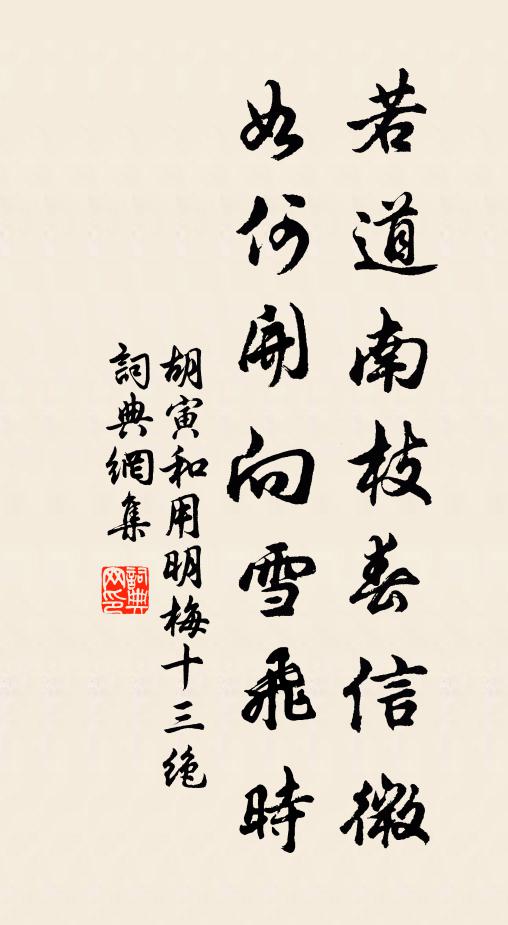 若道南枝春信微
如何開向雪飛時
胡寅和用明梅十三絶
詞典網集
詞典网印